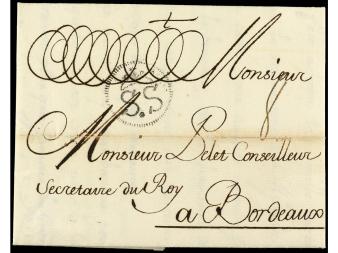 Monsieur
S.S
Monsieur Pelet Conseiller
Secretaire du Roy
a Bordeaux